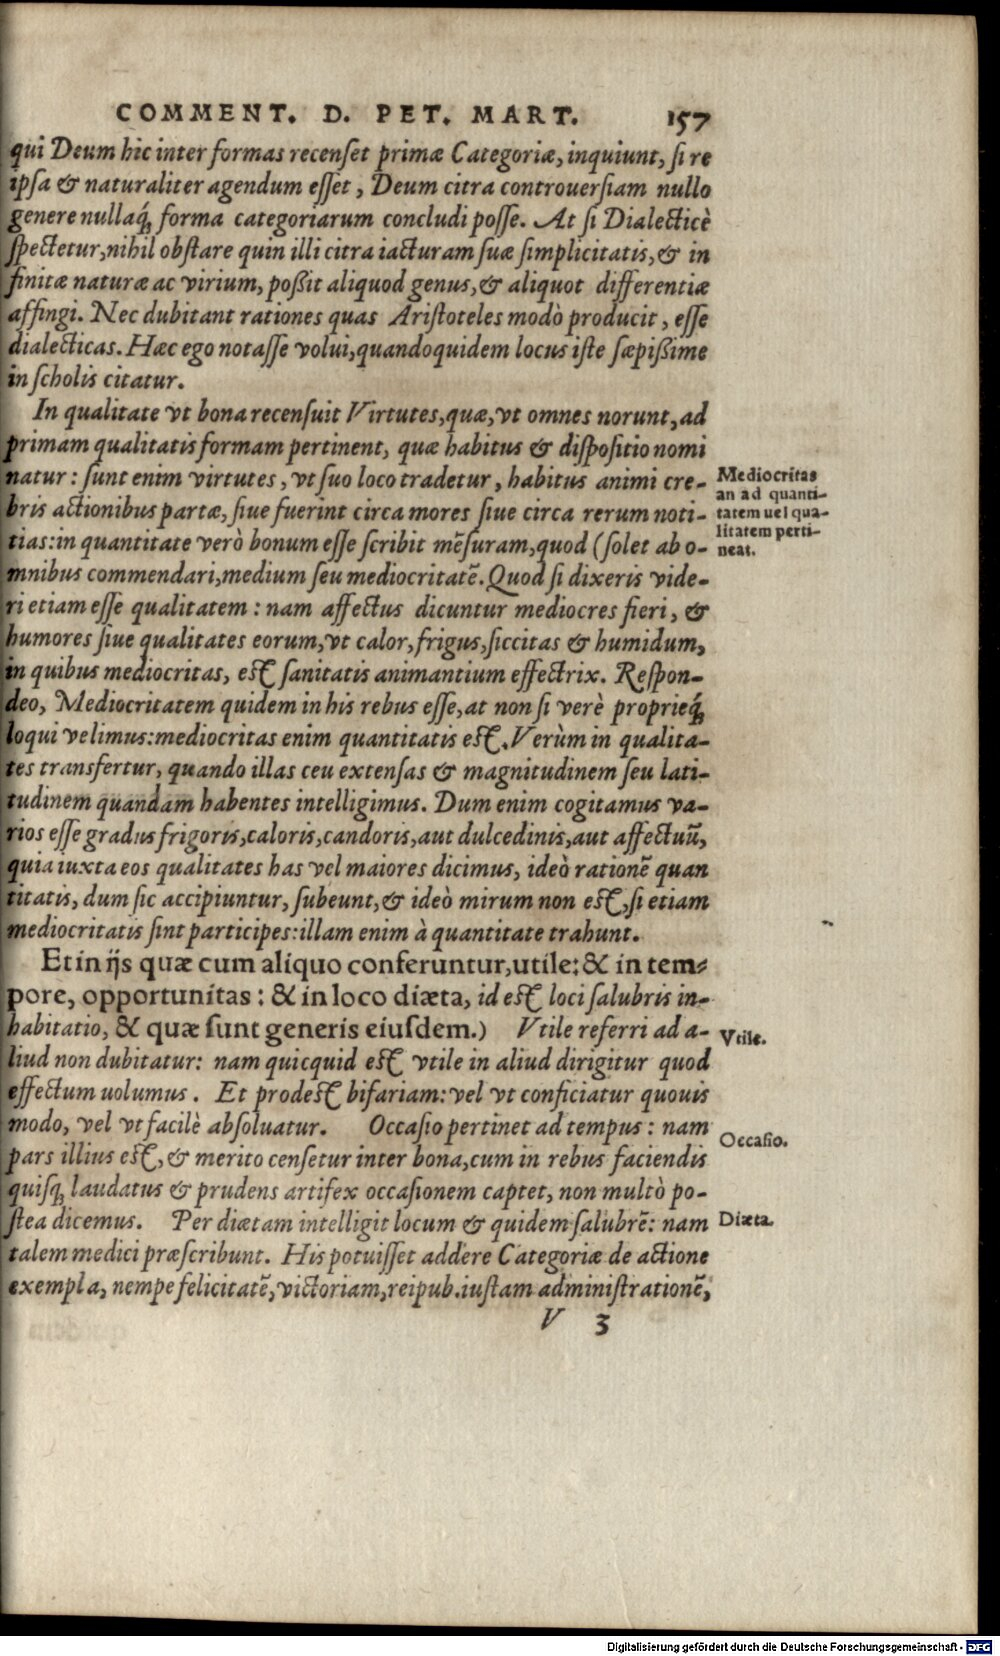 COMMENT. D. PET. MART. 157
qui Deum hic inter formas recenſet primæ Categoriæ, inquiunt, ſi re
ipſa & naturaliter agendum eſſet, Deum citra controuerſiam nullo
genere nullaq́; forma categoriarum concludi poſſe. At ſi Dialecticè
ſpectetur, nihil obſtare quin illi citra iacturam ſuæ ſimplicitatis, & in
finitæ naturæ ac virium, poßit aliquod genus, & aliquot differentiæ
affingi. Nec dubitant rationes quas Ariſtoteles modò producit, eſſe
dialecticas. Hæc ego notaſſe volui, quandoquidem locus iſte ſæpißime
in ſcholis citatur.
In qualitate vt bona recenſuit Virtutes, quæ, vt omnes norunt, ad
primam qualitatis formam pertinent, quæ habitus & diſpoſitio nomi
natur: ſunt enim virtutes, vt ſuo loco tradetur, habitus animi cre-
bris actionibus partæ, ſiue fuerint circa mores ſiue circa rerum noti-
tias: in quantitate verò bonum eſſe ſcribit mẽſuram, quod (ſolet ab o-
mnibus commendari, medium ſeu mediocritatẽ. Quod ſi dixeris vide-
ri etiam eſſe qualitatem: nam affectus dicuntur mediocres fieri, &
humores ſiue qualitates eorum, vt calor, frigus, ſiccitas & humidum,
in quibus mediocritas, eſt ſanitatis animantium effectrix. Reſpon-
deo, Mediocritatem quidem in his rebus eſſe, at non ſi verè proprieq́;
loqui velimus: mediocritas enim quantitatis eſt. Verùm in qualita-
tes transfertur, quando illas ceu extenſas & magnitudinem ſeu lati-
tudinem quandam habentes intelligimus. Dum enim cogitamus va-
rios eſſe gradus frigoris, caloris, candoris, aut dulcedinis, aut affectuũ,
quia iuxta eos qualitates has vel maiores dicimus, ideò rationẽ quan
titatis, dum ſic accipiuntur, ſubeunt, & ideò mirum non eſt, ſi etiam
mediocritatis ſint participes: illam enim à quantitate trahunt.
Et in ijs quæ cum aliquo conferuntur, utile: & in tem-
pore, opportunitas: & in loco diæta, id eſt loci ſalubris in-
habitatio, & quæ ſunt generis eiuſdem.) Vtile referri ad a-
liud non dubitatur: nam quicquid eſt vtile in aliud dirigitur quod
effectum uolumus. Et prodeſt bifariam: vel vt conficiatur quouis
modo, vel vt facilè abſoluatur. Occaſio pertinet ad tempus: nam
pars illius eſt, & merito cenſetur inter bona, cum in rebus faciendis
quiſq; laudatus & prudens artifex occaſionem captet, non multò po-
ſtea dicemus. Per diætam intelligit locum & quidem ſalubrẽ: nam
talem medici præſcribunt. His potuiſſet addere Categoriæ de actione
exempla, nempe felicitatẽ, victoriam, reipub. iuſtam adminiſtrationẽ,
V 3
Mediocritas
an ad quanti-
tatem uel qua-
litatem perti-
neat.
Vtile.
Occaſio.
Diæta.
Digitalisierung gefördert durch die Deutsche Forschungsgemeinschaft - DFG